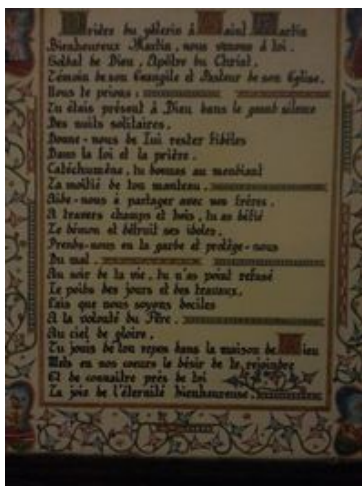 Prière du pèlerin à Saint Martin
Bienheureux Martin, nous venons à toi.
Soldat de Dieu, Apôtre du Christ,
Témoin de son Evangile et Pasteur de son Eglise,
Nous te prions :
Tu étais présent à Dieu dans le grand silence
Des nuits solitaires.
Donne-nous de Lui rester fidèles
Dans la foi et la prière.
Catéchumène, tu donnas au mendiant
La moitié de ton manteau.
Aide-nous à partager avec nos frères.
A travers champs et bois, tu as défié
Le démon et détruit ses idoles.
Prends-nous en ta garde et protège-nous
Du mal.
Au soir de ta vie, tu n'as point refusé
Le poids des jours et des travaux.
Fais que nous soyons dociles
A la volonté du Père.
Au ciel de gloire,
Tu jouis de ton repos dans la maison de Dieu
Mets en nos coeurs le désir de te rejoindre
Et de connaître près de toi
La joie de l'éternité bienheureuse.